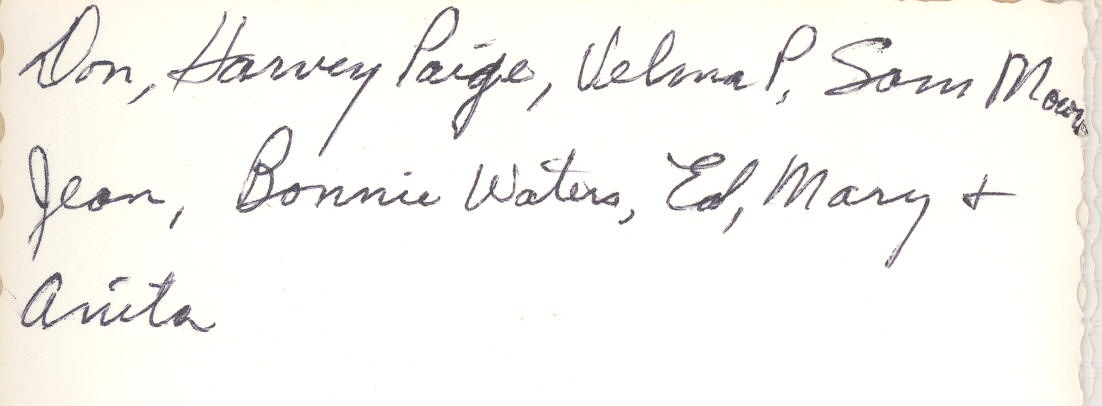 Don, Harvey Paige, Velma P, Sam
Jean, Bonnie Waters, Ed, Mary +
Anita